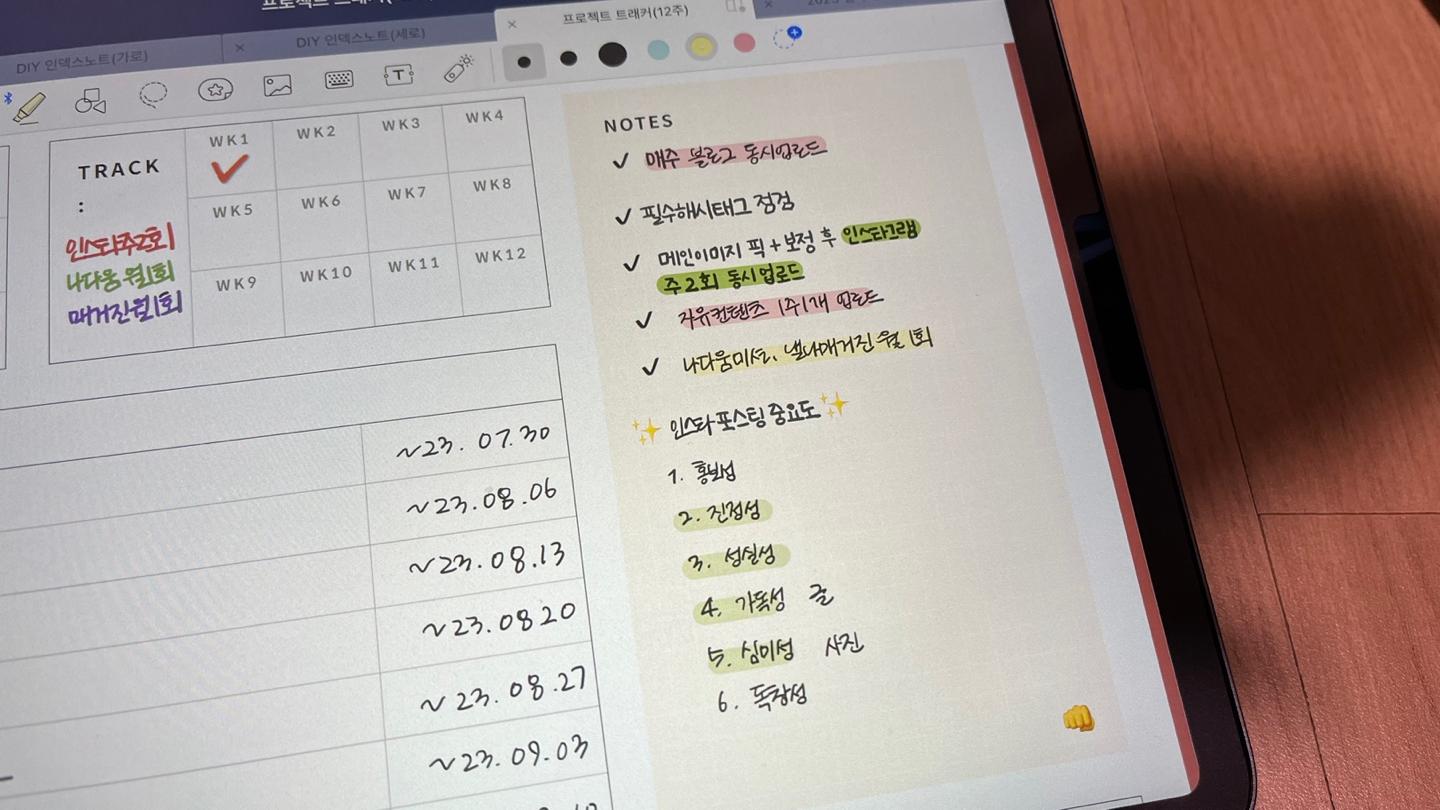 프로젝트 트래커(
DIY 인덱스노트(가로)
DIY 인덱스노트(세로)
프로젝트 트래커(12주)
T
TRACK
:
인스타주2회
나다움 월1회
매거진월1회
WK1
WK2
WK3
WK4
WK5
WK6
WK7
WK8
WK9
WK10
WK11
WK12
~23. 07. 30
~23. 08. 06
~23. 08. 13
~23. 08 20
~23. 08. 27
~23. 09. 03
NOTES
✓ 매주 블로그 동시업로드
✓ 필수해시태그 점검
✓ 메인이미지 픽 + 보정 후 인스타그램
주 2회 동시업로드
✓ 자유컨텐츠 1주1개 업로드
✓ 나다움미션, 낼나매거진 월 1회
✨ 인스타 포스팅 중요도 ✨
1. 홍보성
2. 진정성
3. 성실성
4. 가독성 글
5. 심미성 사진
6. 독창성